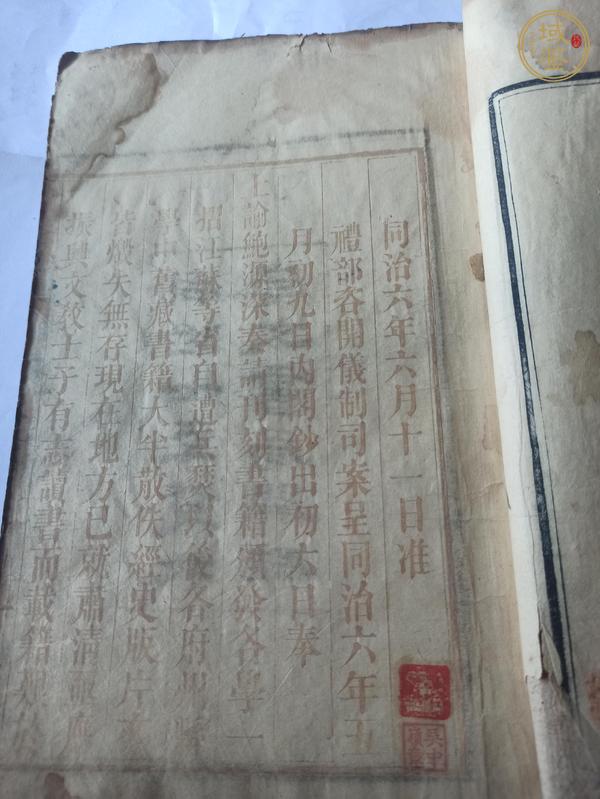 同治六年六月十一日准
禮部咨開儀制司案呈同治六年五
月初九日內閣鈔出初六日奉
上諭鮑源深奏請刊刻書籍頒發各學一
招江蘇等省自遭兵燹以後各府縣
學中舊藏書籍大半散佚經史版片
皆燬失無存現在地方已就肅清
振興文教士子有志讀書而載籍